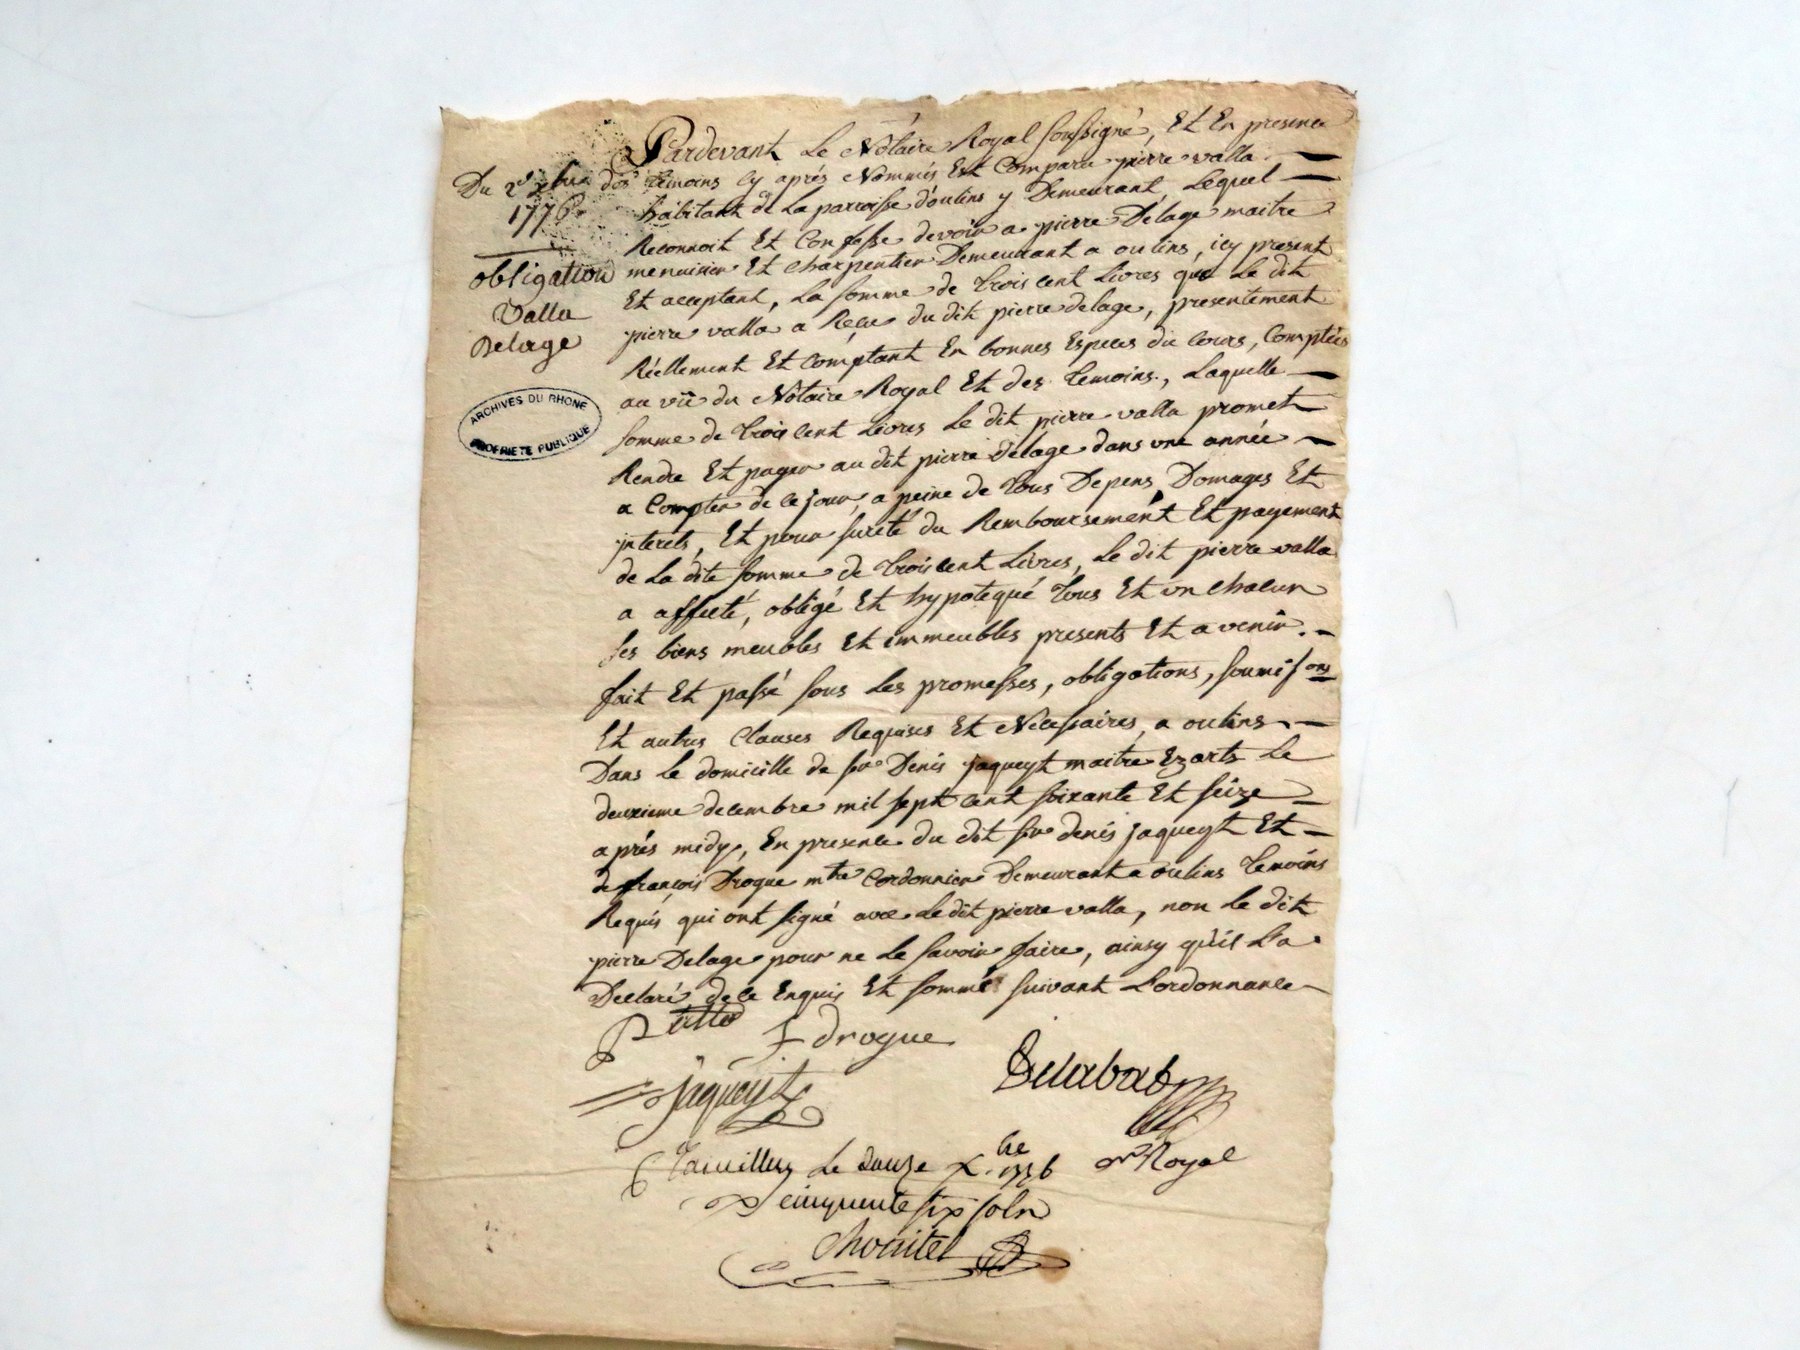 Pardevant Le Nôtaire Royal soussigné, Et En presence
Du 2e xbre
1776
des Temoins Cy aprés Nommés Est Comparu pierre valla
habitant de La parroisse d'oulins y Demeurant, Lequel
Reconnoit Et Confesse devoir a pierre Delage maitre
obligation
menuisier Et Charpentier Demeurant a oulins, icy present
Valla
Et acceptant, La somme de Trois cent Livres que Le dit
Delage
pierre valla a Reçu du dit pierre delage, presentement
Réellement Et Comptant En bonnes Especes du Cours, Comptées
ARCHIVES DU RHONE
PROPRIETE PUBLIQUE
au vû du Nôtaire Royal Et des Temoins, Laquelle
somme de Trois Cent Livres Le dit pierre valla promet
Rendre Et payer au dit pierre Delage dans une année
a Compter de ce jour, a peine de Tous Depens Domages Et
interets, Et pour sureté du Remboursement Et payement
de La dite somme de Trois cent Livres, Le dit pierre valla
a affecté, obligé Et hypotequé Tous Et un Chacun
ses biens meubles Et immeubles presents Et a venir.
fait Et passé sous Les promesses, obligations, soumisons
Et autres Clauses Requises Et Necessaires, a oulins
Dans Le domicille de sr Denis jaqueyt maitre Ezarts Le
deuxieme decembre mil sept cent soixante Et seize
aprés midy, En presence du dit sr denis jaqueyt Et
de françois Drogue mtre Cordonnier Demeurant a oulins Temoins
Requis qui ont signé avec Le dit pierre valla, non Le dit
pierre Delage pour ne Le savoir faire, ainsy qu'il L'a
Declaré de ce Enquis Et sommé suivant L'ordonnance
P valla
f drogue
jaqueyt
Delabat
Le douze Xbre 1776
nre Royal
cinquante six sols